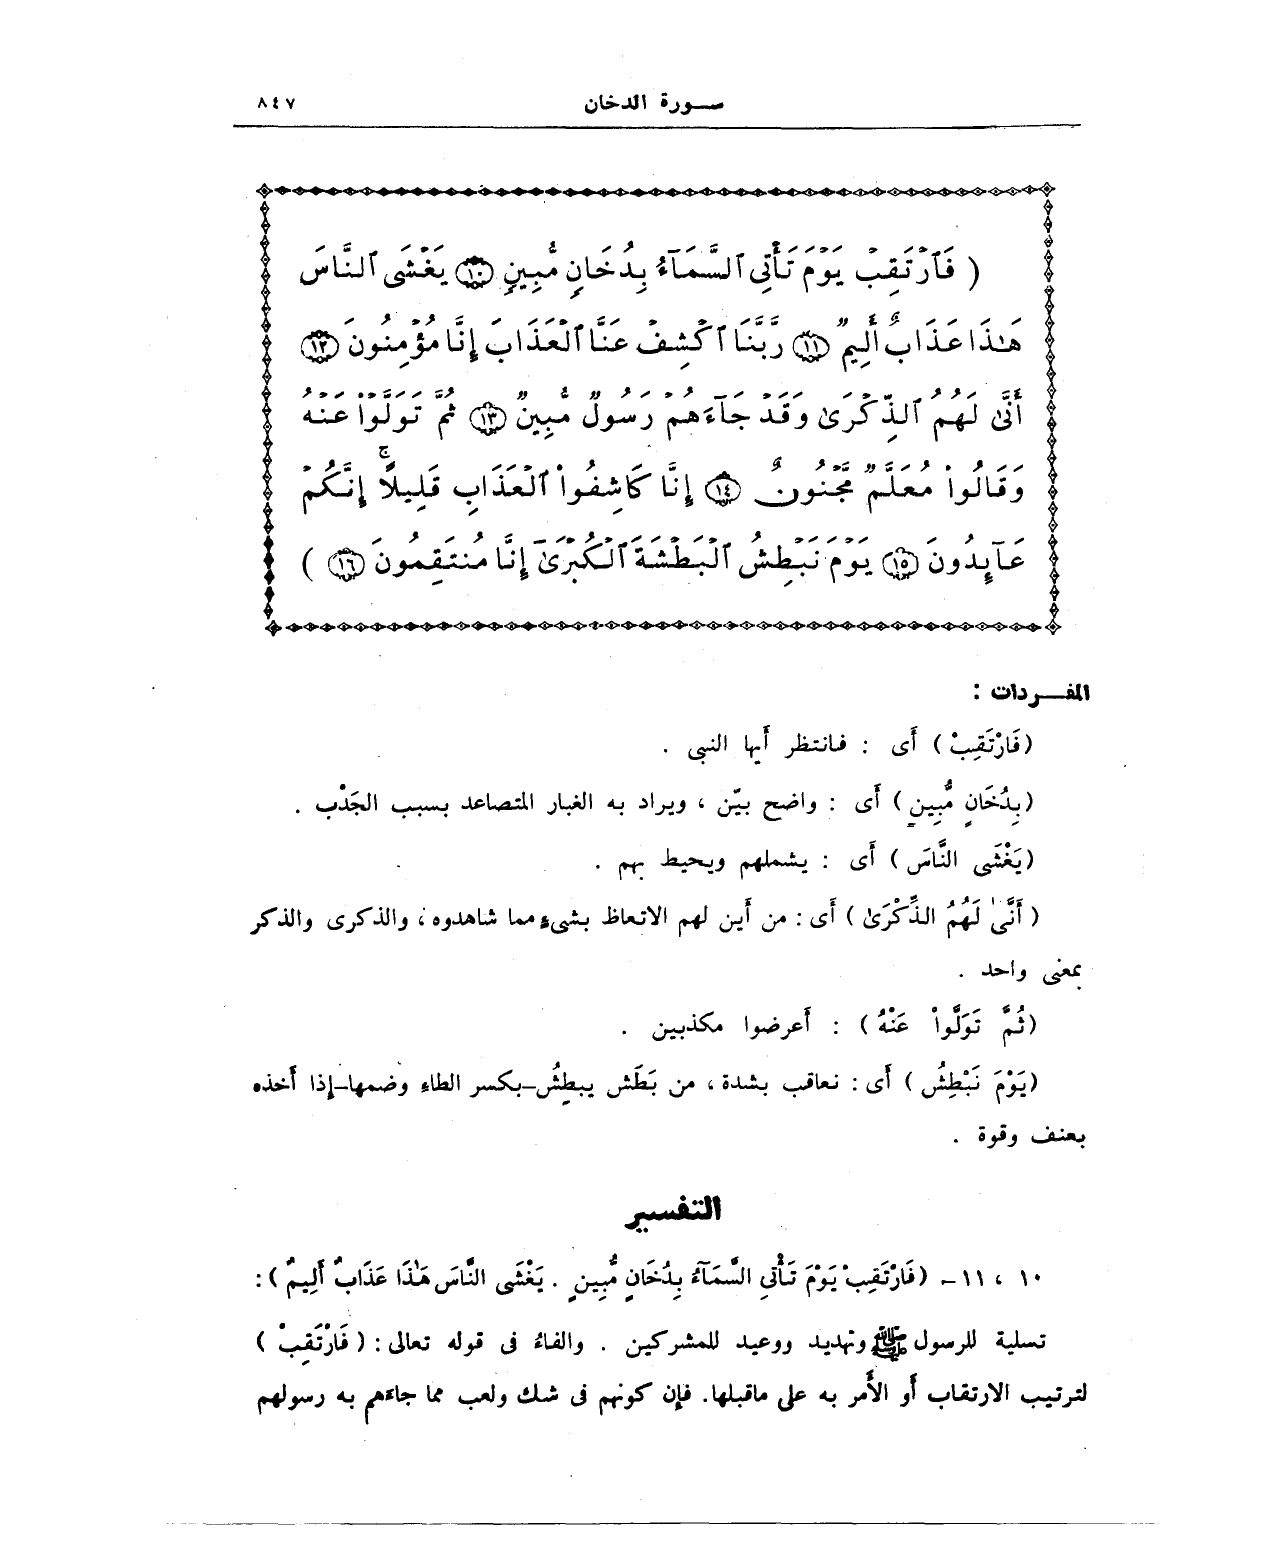 سورة الدخان ٨٤٧
( فَٱرْتَقِبْ يَوْمَ تَأْتِى ٱلسَّمَآءُ بِدُخَانٍ مُّبِينٍ ⑩ يَغْشَى ٱلنَّاسَ
هَـٰذَا عَذَابٌ أَلِيمٌ ⑪ رَّبَّنَا ٱكْشِفْ عَنَّا ٱلْعَذَابَ إِنَّا مُؤْمِنُونَ ⑫
أَنَّىٰ لَهُمُ ٱلذِّكْرَىٰ وَقَدْ جَآءَهُمْ رَسُولٌ مُّبِينٌ ⑬ ثُمَّ تَوَلَّوْا۟ عَنْهُ
وَقَالُوا۟ مُعَلَّمٌ مَّجْنُونٌ ⑭ إِنَّا كَاشِفُوا۟ ٱلْعَذَابِ قَلِيلًا ۚ إِنَّكُمْ
عَآئِدُونَ ⑮ يَوْمَ نَبْطِشُ ٱلْبَطْشَةَ ٱلْكُبْرَىٰٓ إِنَّا مُنتَقِمُونَ ⑯ )
المفردات :
(فَارْتَقِبْ) أَى : فانتظر أَيها النبى .
(بِدُخَانٍ مُّبِينٍ) أَى : واضح بيّن ، ويراد به الغبار المتصاعد بسبب الجَدْب .
(يَغْشَى النَّاسَ) أَى : يشملهم ويحيط بهم .
(أَنَّىٰ لَهُمُ الذِّكْرَىٰ) أَى : من أَين لهم الاتعاظ بشىءٍ مما شاهدوه ، والذكرى والذكر
بمعنى واحد .
(ثُمَّ تَوَلَّوْا عَنْهُ) : أَعرضوا مكذبين .
(يَوْمَ نَبْطِشُ) أَى : نعاقب بشدة ، من بَطَش يبطِشُ–بكسر الطاءِ وضمها–إِذا أَخذه
بعنف وقوة .
التفسير
١٠ ، ١١ – (فَارْتَقِبْ يَوْمَ تَأْتِي السَّمَآءُ بِدُخَانٍ مُّبِينٍ . يَغْشَى النَّاسَ هَٰذَا عَذَابٌ أَلِيمٌ) :
تسلية للرسول ﷺ وتهديد ووعيد للمشركين . والفاءُ فى قوله تعالى : (فَارْتَقِبْ)
لترتيب الارتقاب أَو الأَمر به على ماقبلها. فإن كونهم فى شك ولعب مما جاءَهم به رسولهم